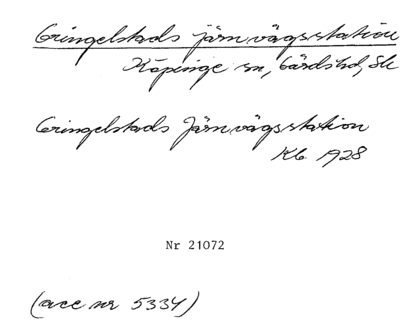 Gringelstads järnvägsstation
Köpinge sn, Gärds hd, Sk
Gringelstads Järnvägsstation
Kb 1928
Nr 21072
(acc nr 5334)